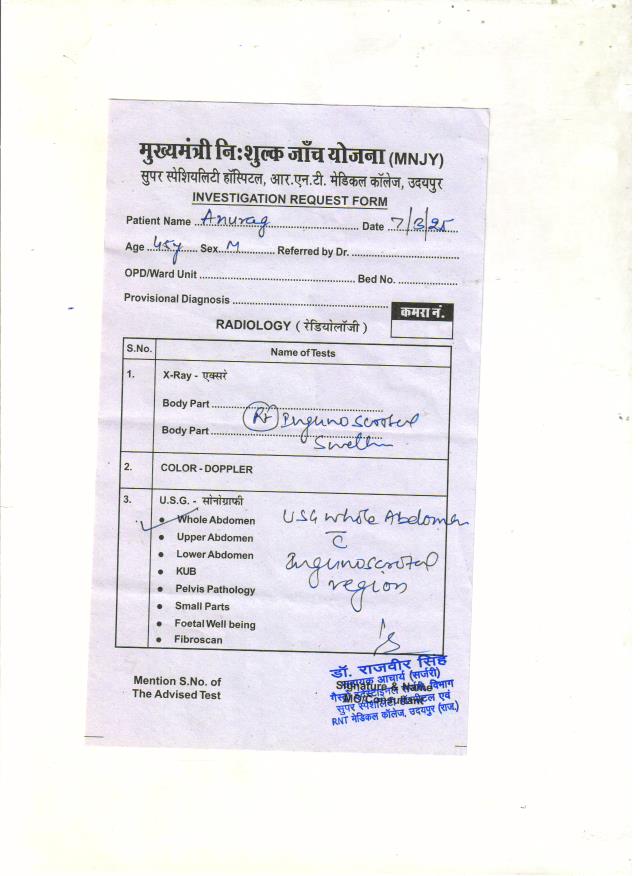 मुख्यमंत्री निःशुल्क जाँच योजना (MNJY)
सुपर स्पेशियलिटी हॉस्पिटल, आर.एन.टी. मेडिकल कॉलेज, उदयपुर
INVESTIGATION REQUEST FORM
Patient Name Anurag Date 7/3/25
Age 45y Sex M Referred by Dr.
OPD/Ward Unit Bed No.
Provisional Diagnosis
कमरा नं.
RADIOLOGY ( रेडियोलॉजी )
S.No. Name of Tests
1. X-Ray - एक्सरे
Body Part
Rt Inguinoscrotal
Body Part
Swelln
2. COLOR - DOPPLER
3. U.S.G. - सोनोग्राफी
• Whole Abdomen USG whole Abdomen
• Upper Abdomen c
• Lower Abdomen Inguinoscrotal
• KUB region
• Pelvis Pathology
• Small Parts
• Foetal Well being
• Fibroscan
डॉ. राजवीर सिंह
सहायक आचार्य (सर्जरी)
Mention S.No. of Signature & Name
The Advised Test MO/Consultant
सुपर स्पेशलिटी हॉस्पीटल एवं
RNT मेडिकल कॉलेज, उदयपुर (राज.)